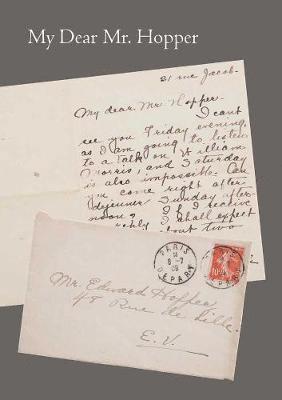 My Dear Mr. Hopper
21 rue Jacob-
My dear Mr. Hopper-
I cant
see you Friday evening,
as I am going to listen
to a talk on William
Morris, and Saturday
is also impossible. Can
you come right after
dejeuner Sunday after-
noon? If I receive
I shall expect
about two
PARIS
DEPART
10
Mr. Edward Hopper
48 Rue de Lille.
E. V.